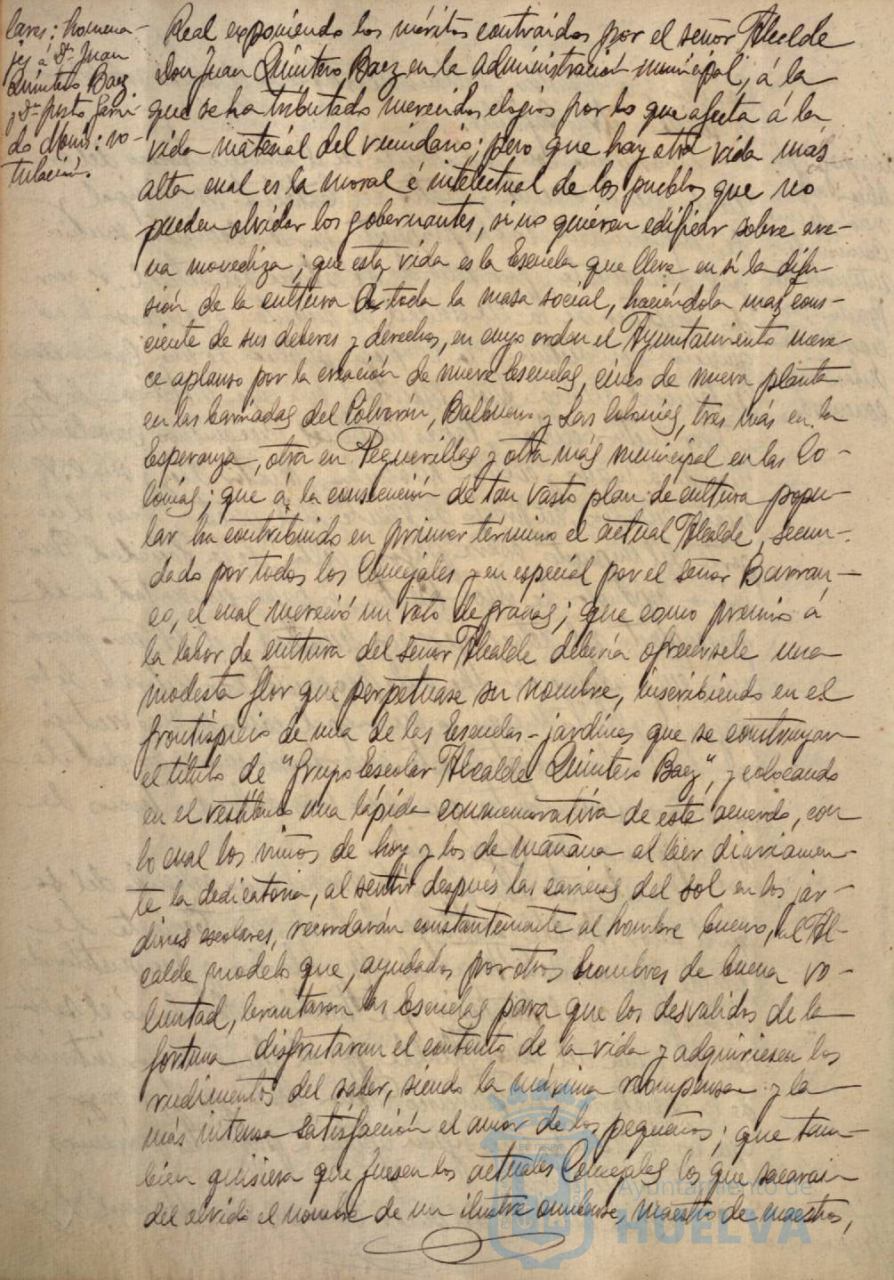 lares: homena-
je á Dn Juan
Quintero Baez
y Dn Justo Garri-
do Mons: ro-
tulación.
Real exponiendo los méritos contraidos por el señor Alcalde
Don Juan Quintero Baez en la administración municipal, á la
que se ha tributado merecidos elogios por lo que afecta á la
vida material del vecindario; pero que hay otra vida más
alta cual es la moral é intelectual de los pueblos que no
pueden olvidar los gobernantes, si no quieren edificar sobre are-
na movediza; que esta vida es la Escuela que lleva en sí la difu-
sión de la cultura á toda la masa social, haciéndola más cons-
ciente de sus deberes y derechos, en cuyo orden el Ayuntamiento mere-
ce aplauso por la creación de nueve Escuelas, cinco de nueva planta
en las barriadas del Polvorín, Balbueno y Las Colonias, tres más en la
Esperanza, otra en Peguerillas y otra más municipal en las Co-
lonias; que á la consecución de tan vasto plan de cultura popu-
lar ha contribuido en primer término el actual Alcalde, secun-
dado por todos los Concejales y en especial por el señor Barran-
co, el cual mereció un voto de gracias; que como premio á
la labor de cultura del señor Alcalde debería ofrecérsele una
modesta flor que perpetuase su nombre, inscribiendo en el
frontispicio de una de las Escuelas-jardines que se construyan
el título de "Grupo Escolar Alcalde Quintero Baez", y colocando
en el vestíbulo una lápida conmemorativa de este acuerdo, con
lo cual los niños de hoy y los de mañana al leer diariamen-
te la dedicatoria, al sentir después las caricias del sol en los jar-
dines escolares, recordarán constantemente al hombre bueno, al Al-
calde modelo que, ayudados por otros hombres de buena vo-
luntad, levantaron las Escuelas para que los desvalidos de la
fortuna disfrutaran el contento de la vida y adquiriesen los
rudimentos del saber, siendo la máxima recompensa y la
más intensa satisfacción el amor de los pequeños; que tam-
bién quisiera que fuesen los actuales Concejales los que sacaran
del olvido el nombre de un ilustre onubense, maestro de maestros,
Ayuntamiento de
HUELVA